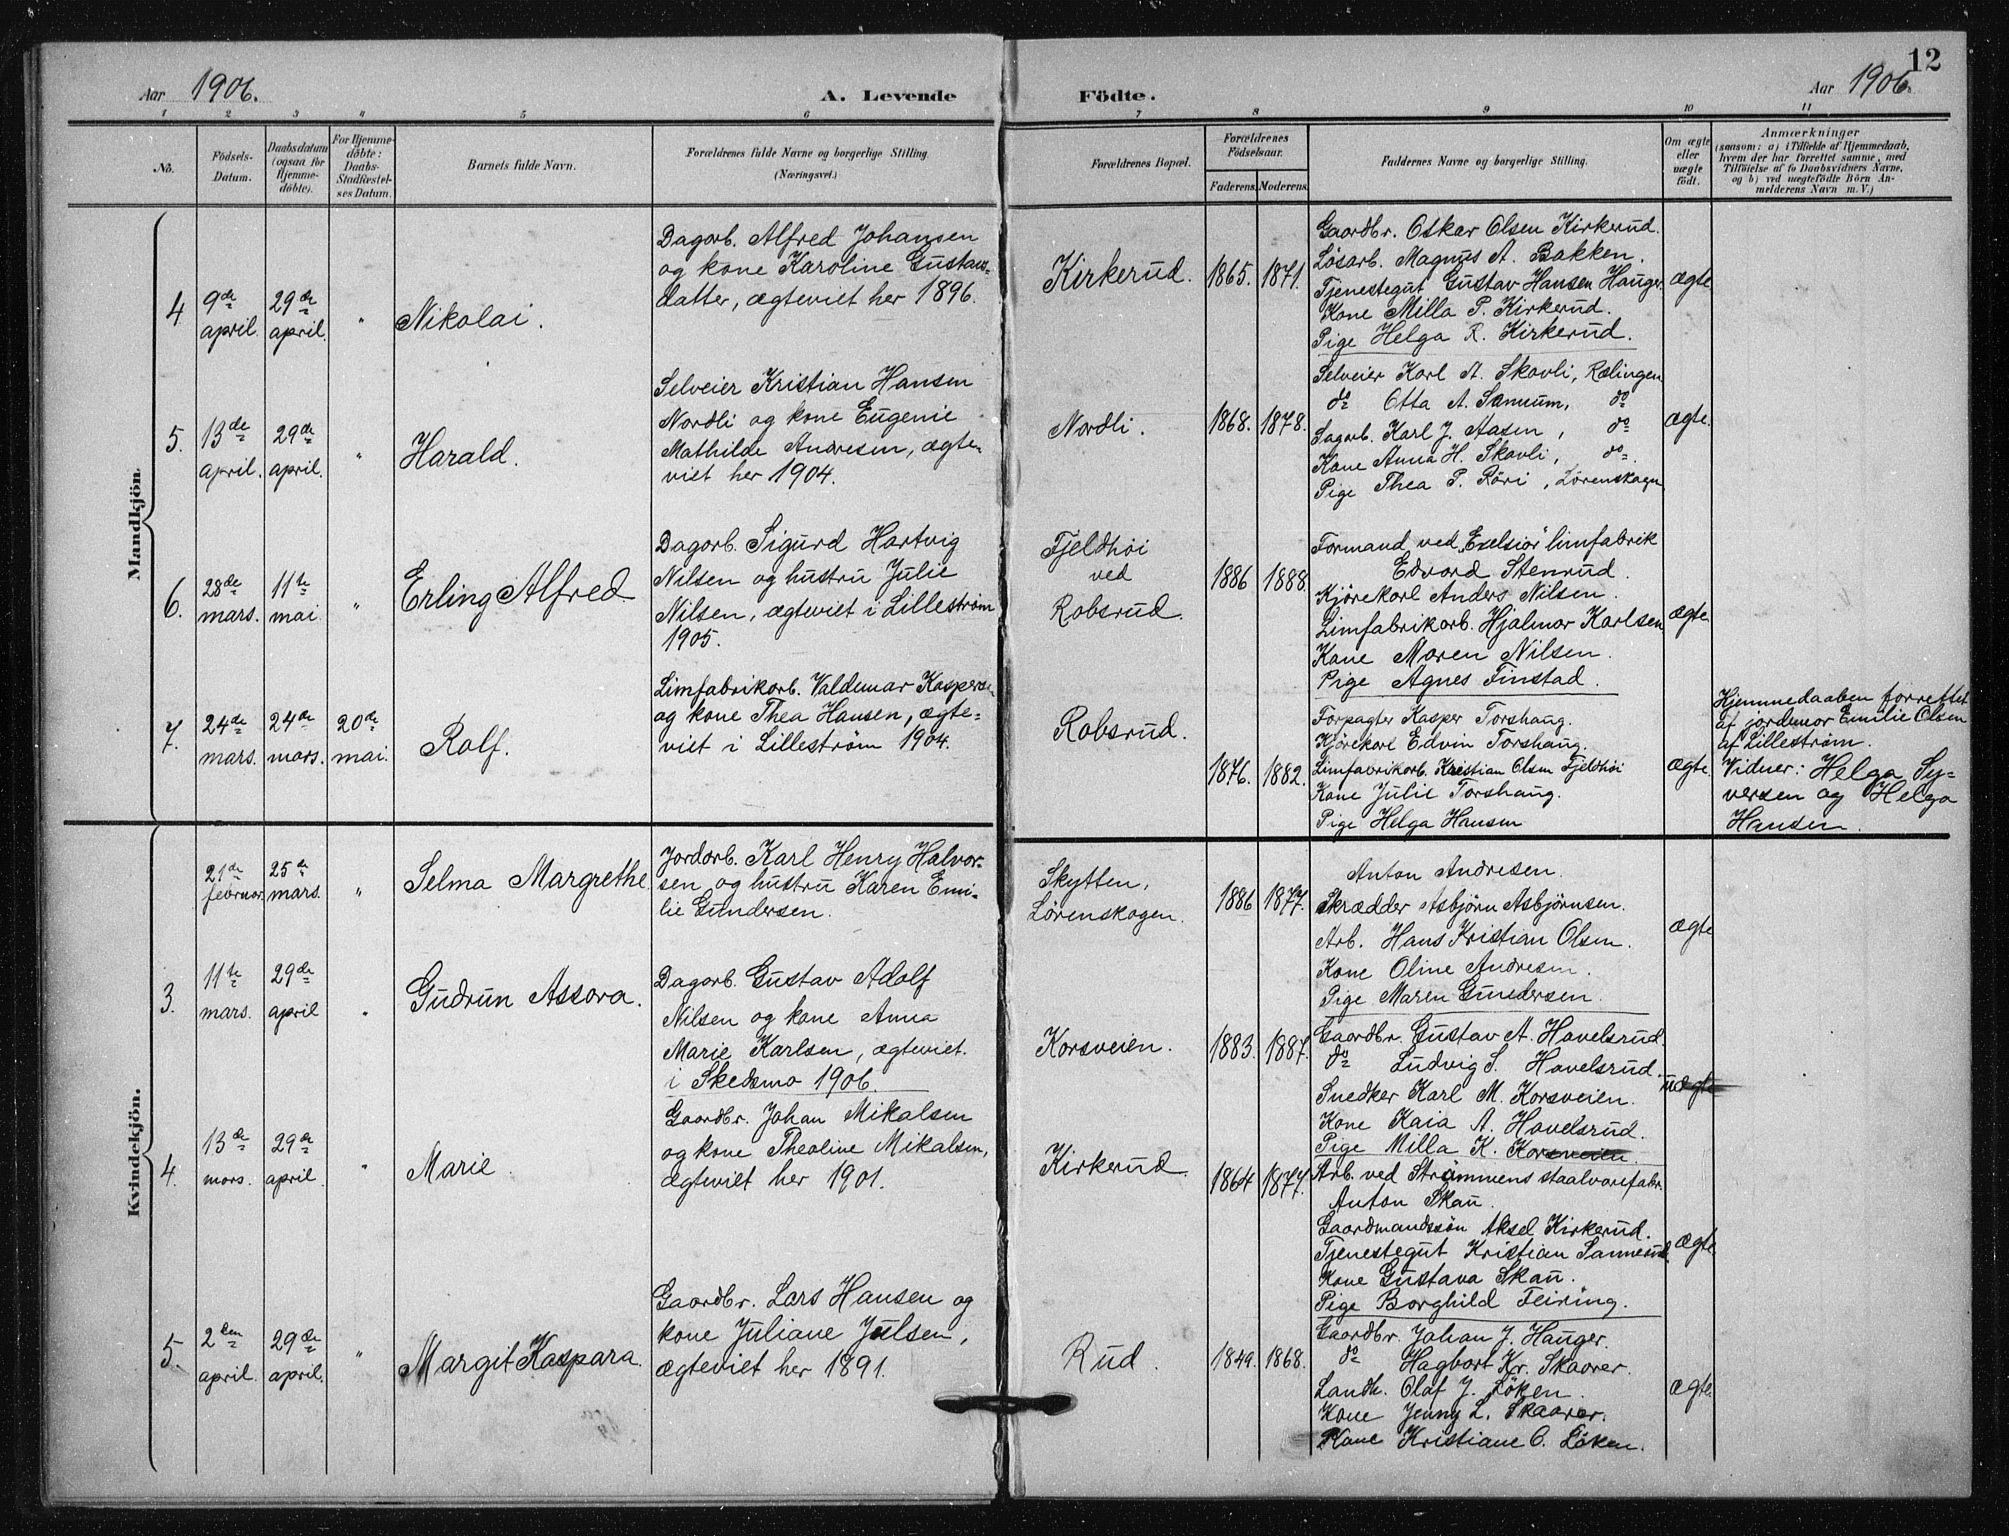 12
Aar 1906.
A. Levende Födte.
Aar 1906.
1 2 3 4 5 6 7 8 9 10 11
No.
Födsels-
Datum.
Daabsdatum
(ogsaa for
Hjemme-
döbte).
For Hjemme-
döbte:
Daabs-
Stadfæstel-
ses Datum.
Barnets fulde Navn.
Forældrenes fulde Navne og borgerlige Stilling.
(Næringsvei.)
Forældrenes Bopæl.
Forældrenes
Födselsaar.
Faderens. Moderens.
Faddernes Navne og borgerlige Stilling.
Om ægte
eller
uægte
födt.
Anmærkninger
(saasom: a) i Tilfælde af Hjemmedaab,
hvem der har forrettet samme, med
Tilföielse af to Daabsvidners Navne,
og b) ved uægtefödte Börn An-
melderens Navn m. V.)
Mandkjön.
4
9de
april.
29de
april.
"
Nikolai.
Dagarb. Alfred Johansen
og kone Karoline Gustavs-
datter, ægteviet her 1896.
Kirkerud.
1865. 1871.
Gaardbr. Oskar Olsen Kirkerud.
Løsarb. Magnus A. Bakken.
Tjenestegut Gustav Hansen Hauger.
Kone Milla P. Kirkerud.
Pige Helga R. Kirkerud.
ægte
5.
13de
april.
29de
april.
"
Harald.
Selveier Kristian Hansen
Nordli og kone Eugenie
Mathilde Andresen, ægte-
viet her 1904.
Nordli.
1868. 1878.
Selveier Karl A. Skovli, Rælingen
do Otto A. Sannum, do
Sagarb. Karl J. Aasen, do
Kone Anna H. Skovli, do.
Pige Thea P. Röri, Lørenskogen
ægte.
6.
28de
mars.
11te
mai
"
Erling Alfred.
Dagarb. Sigurd Hartvig
Nilsen og hustru Julie
Nilsen, ægteviet i Lilleström
1905.
Fjeldhöi
ved
Robsrud.
1886 1888.
Formand ved "Exelsior" limfabrik
Edvard Stenrud.
Kjørekarl Anders Nilsen.
Limfabrikarb. Hjalmar Karlsen
Kone Maren Nilsen.
Pige Agnes Finstad.
ægte.
7.
24de
mars.
24de
mars.
20de
mai.
Rolf.
Limfabrikarb. Valdemar Kaspersen
og kone Thea Hansen, ægte-
viet i Lilleström 1904.
Robsrud.
1876. 1882.
Forpagter Kasper Torshaug.
Kjörekarl Edvin Torshaug.
Limfabrikarb. Kristian Olsen Fjeldhöi
Kone Julie Torshaug.
Pige Helga Hansen
ægte.
Hjemmedaaben forrettet
af jordemor Emilie Olsen
af Lilleström.
Vidner: Helga Sy-
versen og Helga
Hansen.
Kvindekjön.
21de
februar.
25de
mars.
"
Selma Margrethe
Jordarb. Karl Henry Halvor-
sen og hustru Karen Emi-
lie Gundersen.
Skytten,
Lørenskogen.
1886 1877.
Anton Andresen.
Skrædder Asbjörn Asbjörnsen.
Arb. Hans Kristian Olsen.
Kone Oline Andresen.
Pige Maren Gundersen.
ægte
3.
11te
mars.
29de
april
"
Gudrun Assora.
Dagarb. Gustav Adolf
Nilsen og kone Anna
Marie Karlsen, ægteviet.
i Skedsmo 1906.
Korsveien.
1883. 1887.
Gaardbr. Gustav A. Havelsrud.
do Ludvig S. Havelsrud.
Snedker Karl M. Korsveien.
Kone Kaia A. Havelsrud.
Pige Milla K. Korsveien.
uægte
4.
13de
mars.
29de
april.
"
Marie.
Gaardbr. Johan Mikalsen
og kone Theoline Mikalsen,
ægteviet her 1901.
Kirkerud.
1864 1877.
Arb. ved Strömmens staalvarefabr.
Anton Skau.
Gaardmandssön Aksel Kirkerud.
Tjenestegut Kristian Sannerud
Kone Gustava Skau.
Pige Borghild Feiring.
ægte
5.
2den
april.
29de
april.
"
Margit Kaspara.
Gaardbr. Lars Hansen og
kone Juliane Julsen,
ægteviet her 1891.
Rud.
1849. 1868.
Gaardbr. Johan J. Hauger.
do Hagbart Kr. Skaarer.
Landh. Olaf J. Löken.
Kone Jenny L. Skaarer.
Kone Kristiane O. Löken.
ægte.